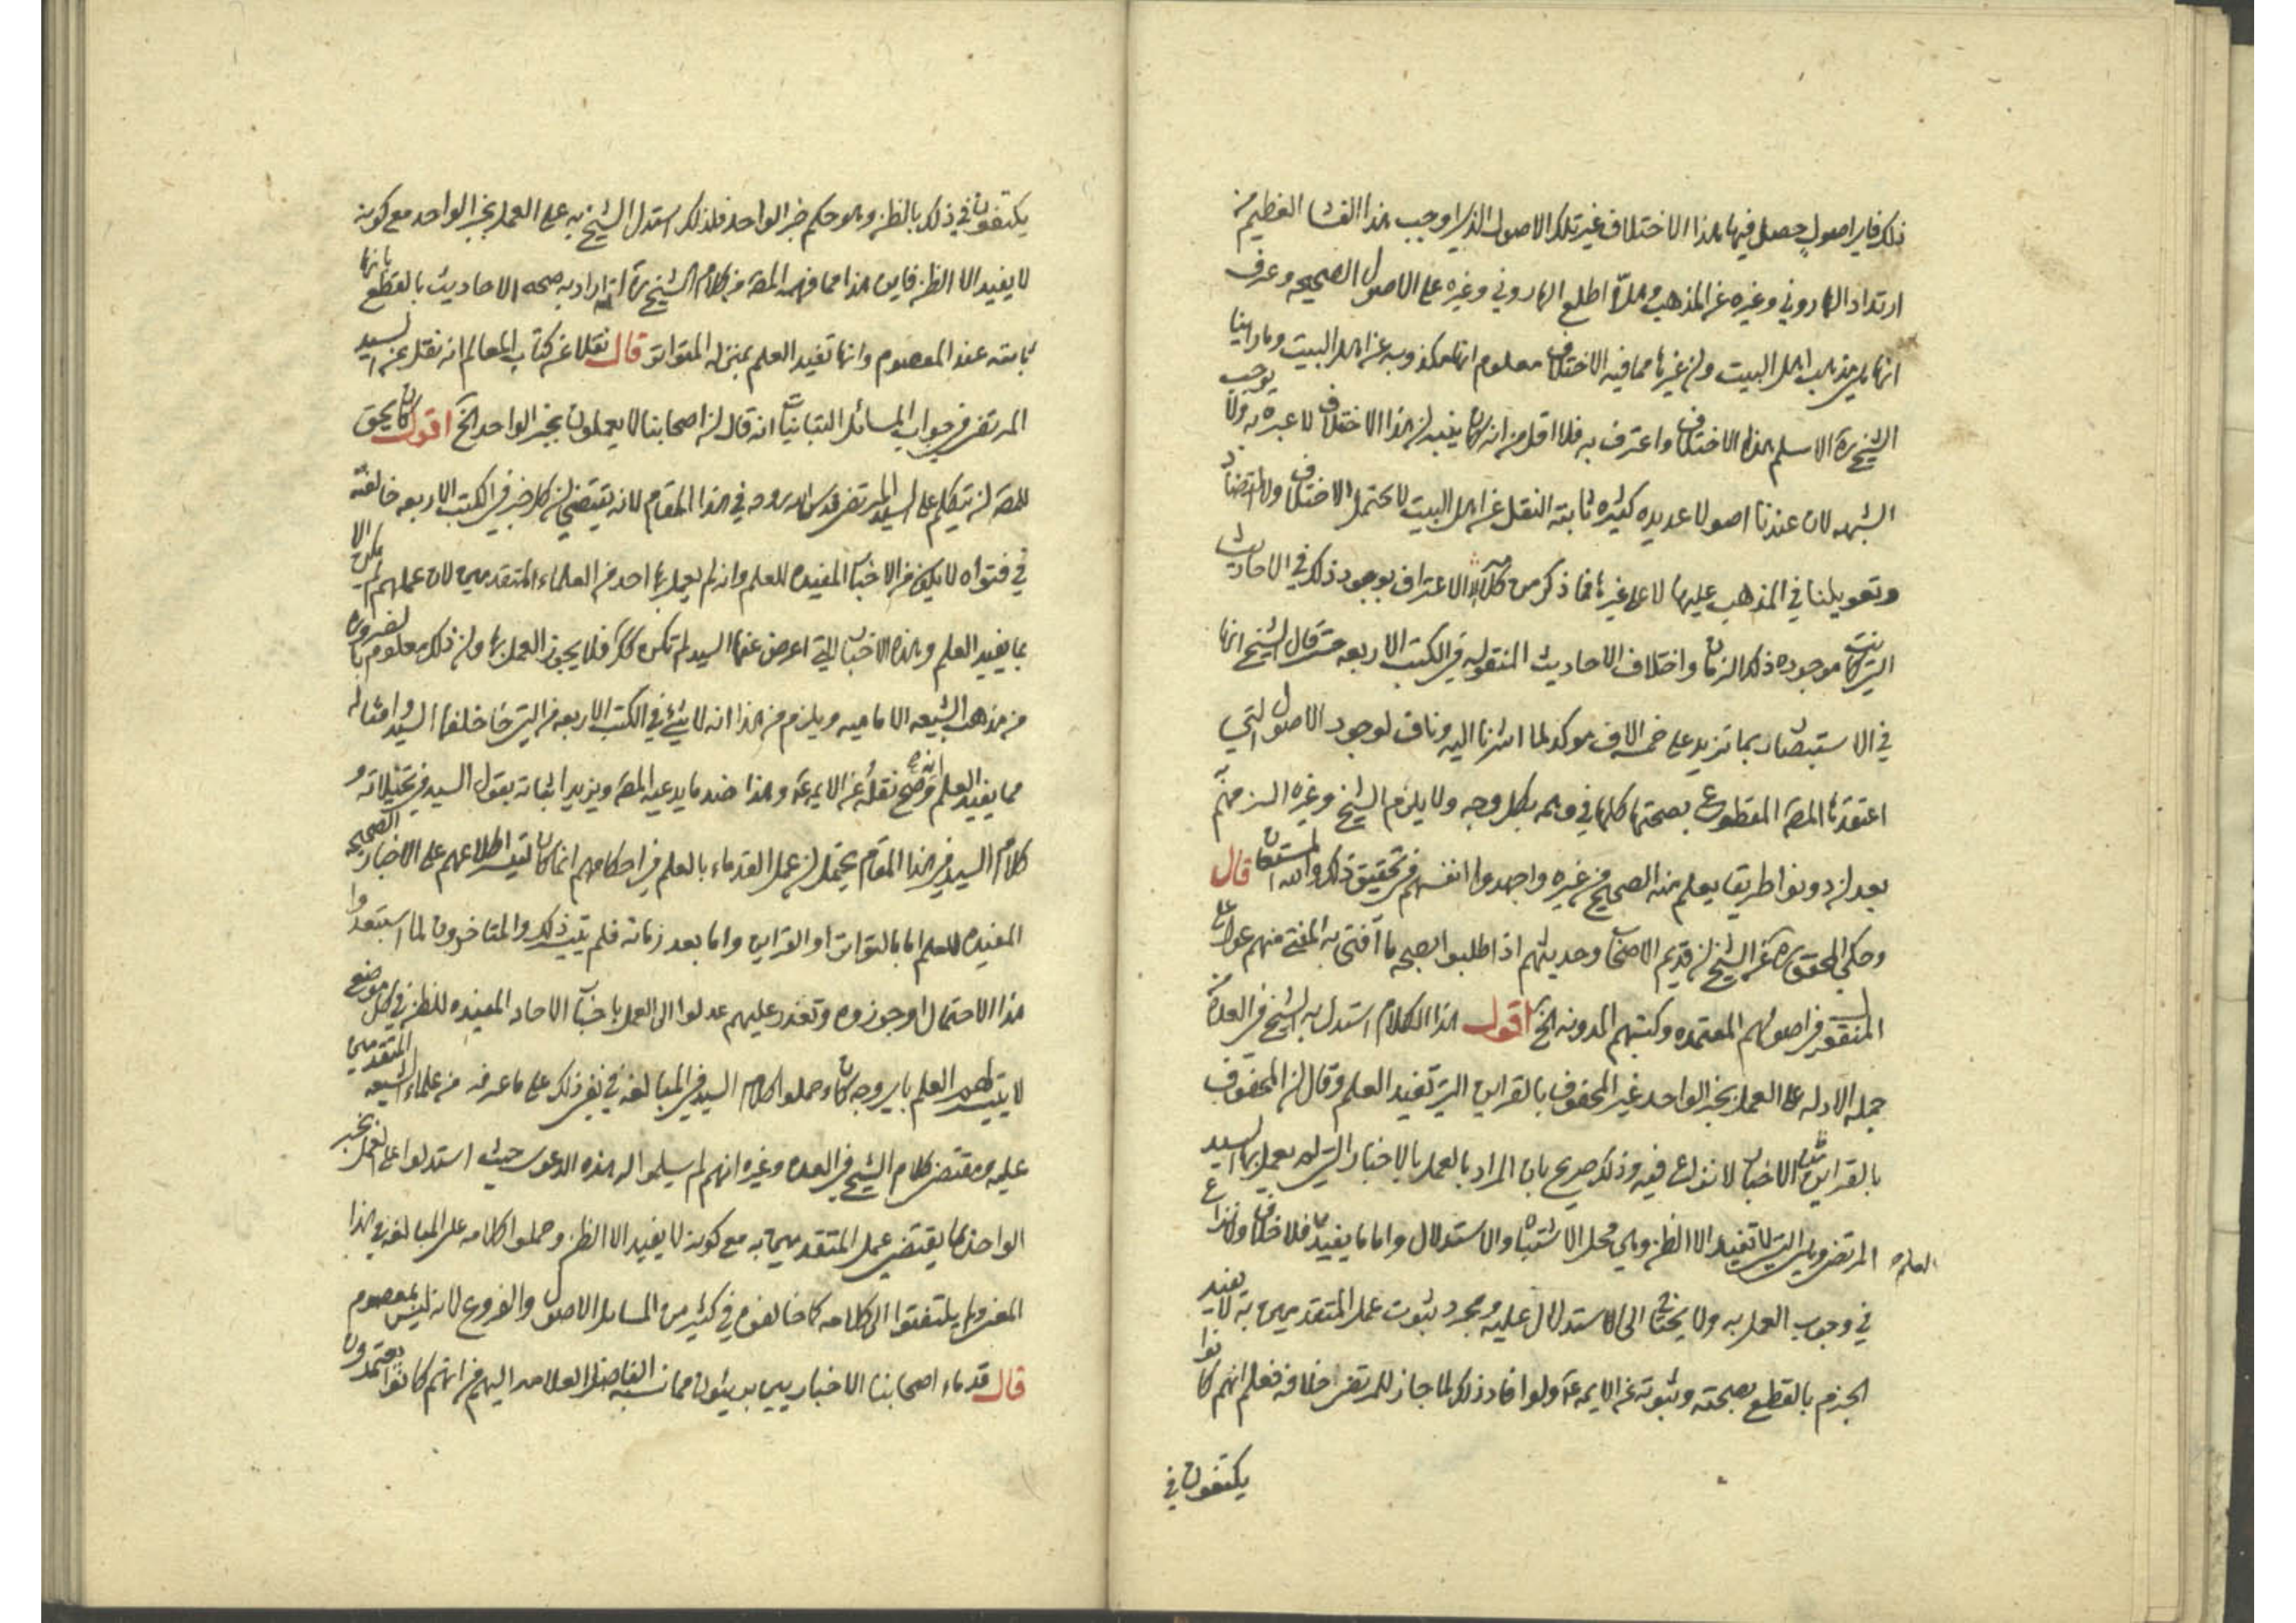 ذلك فاي اصول حصل فيها هذا الاختلاف غير تلك الاصول الذي اوجب هذا العظيم من
ارتداد الهاروني وغيره عن المذهب وهلّا اطلع الهاروني وغيره على الاصول الصحيحه وعرف
انها هي مذهب اهل البيت وان غيرها مما فيه الاختلاف معلوم انها مكذوبه عن اهل البيت وما راينا
الشيخ ره الا سلم هذا الاختلاف واعترف به فلا اقل من انه كان ينبه ان هذا الاختلاف لا عبره به ولا يوجب
الشبهه لان عندنا اصولا عديده كثيره ثابته النقل عن اهل البيت لا تحتمل الاختلاف ولا التضاد
وتعويلنا في المذهب عليها لا على غيرها فما ذكر من كلامه الا الاعتراف بوجود ذلك في الاحاديث
التي كانت موجوده ذلك الزمان واختلاف الاحاديث المنقوله في الكتب الاربعه حتى قال الشيخ انها
في الاستبصار بما تزيد على خمسه الاف موكد لما اشرنا اليه وناف لوجود الاصول التي
اعتقدها المصه المقطوع بصحتها كلها في وهمه بكل وجه ولا يلزم الشيخ وغيره اكثر منه
بعد ان دونوا طريقا يعلم منه الصحيح من غيره واجهدوا انفسهم في تحقيق ذلك والله المستعان قال
وحكى المحقق ره عن الشيخ ان قديم الاصحاب وحديثهم اذا طلبوا بصحه ما افتى به المفتي منهم عولوا على
المنقول في اصولهم المعتمده وكتبهم المدونه الخ اقول هذا الكلام استدل به الشيخ في العده من
جمله الادله على العمل بخبر الواحد غير المحفوف بالقراين التي تفيد العلم وقال ان المحفوف
بالقراين من الاخبار لا نزاع فيه وذلك صريح بان المراد بالعمل بالاخبار التي لم يعمل بها السيد
المرتضى وهي التي لا تفيد الا الظن وهي محل الاشتباه والاستدلال واما ما يفيد العلم فلا خلاف ولا نزاع
في وجوب العمل به ولا يحتاج الى الاستدلال عليه ومجرد ثبوت عمل المتقدمين به لا يفيد
الجزم بالقطع بصحته وثبوته عن الايمه ع ولو افاد ذلك لما جاز للمرتضى خلافه فعلم انهم كانوا
يكتفون في
يكتفون في ذلك بالظن وهو حكم خبر الواحد فلذلك استدل الشيخ به على العمل بخبر الواحد مع كونه
لا يفيد الا الظن فاين هذا مما فهمه المصه من كلام الشيخ ره انه اراد به صحه الاحاديث بالقطع بانها
ثابته عند المعصوم وانها تفيد العلم بمنزله المتواتر قال نقلا عن كتاب المعالم انه نقل عن السيد
المرتضى في جواب المسائل التبانيات انه قال ان اصحابنا لا يعملون بخبر الواحد الخ اقول كان يحق
للمصه ان يتكلم على السيد المرتضى قدس الله روحه في هذا المقام لانه يقتضي ان كل خبر في الكتب الاربعه خالفه
في فتواه لا يكون من الاخبار المفيده للعلم وانه لم يعمل بها احد من العلماء المتقدمين لان عملهم لم يكن الا
بما يفيد العلم وهذه الاخبار التي اعرض عنها السيد لم تكن كك فلا يجوز العمل بها وان ذلك معلوم بالضروره
من مذهب الشيعه الاماميه ويلزم من هذا انه لا شيء في الكتب الاربعه من التي خالفها السيد وامثاله
مما يفيد العلم انه صح نقله عن الايمه ع وهذا ضد ما يدعيه المصه ويزيد اثباته بقول السيد في تخيلاته و
كلام السيد في هذا المقام يحتمل ان عمل القدماء بالعلم في احكامهم انما كان لتيسر اطلاعهم على الاخبار الصحيحه
المفيده للعلم اما بالتواتر او القراين واما بعد زمانه فلم يتيسر ذلك والمتاخرون لما استبعدوا
هذا الاحتمال او جوزوه وتعذر عليهم عدلوا الى العمل باخبار الاحاد المفيده للظن في كل موضع
لا يتيسر لهم العلم باي وجه كان وحملوا كلام السيد في المبالغه في نفي ذلك على ما عرفه من علماء الشيعه المتقدمين
عليه ومقتضى كلام الشيخ في العده وغيره انهم لم يسلموا له هذه الدعوى حيث استدلوا على العمل بخبر
الواحد بما يقتضي عمل المتقدمين به مع كونه لا يفيد الا الظن وحملوا كلامه على المبالغه في هذا
المعنى ولم يلتفتوا الى كلامه كما خالفوه في كثير من المسايل الاصول والفروع لانه ليس بمعصوم
قال قدماء اصحابنا الاخباريين بريئون مما نسبه الفاضل العلامه اليهم من انهم كانوا يعتمدون